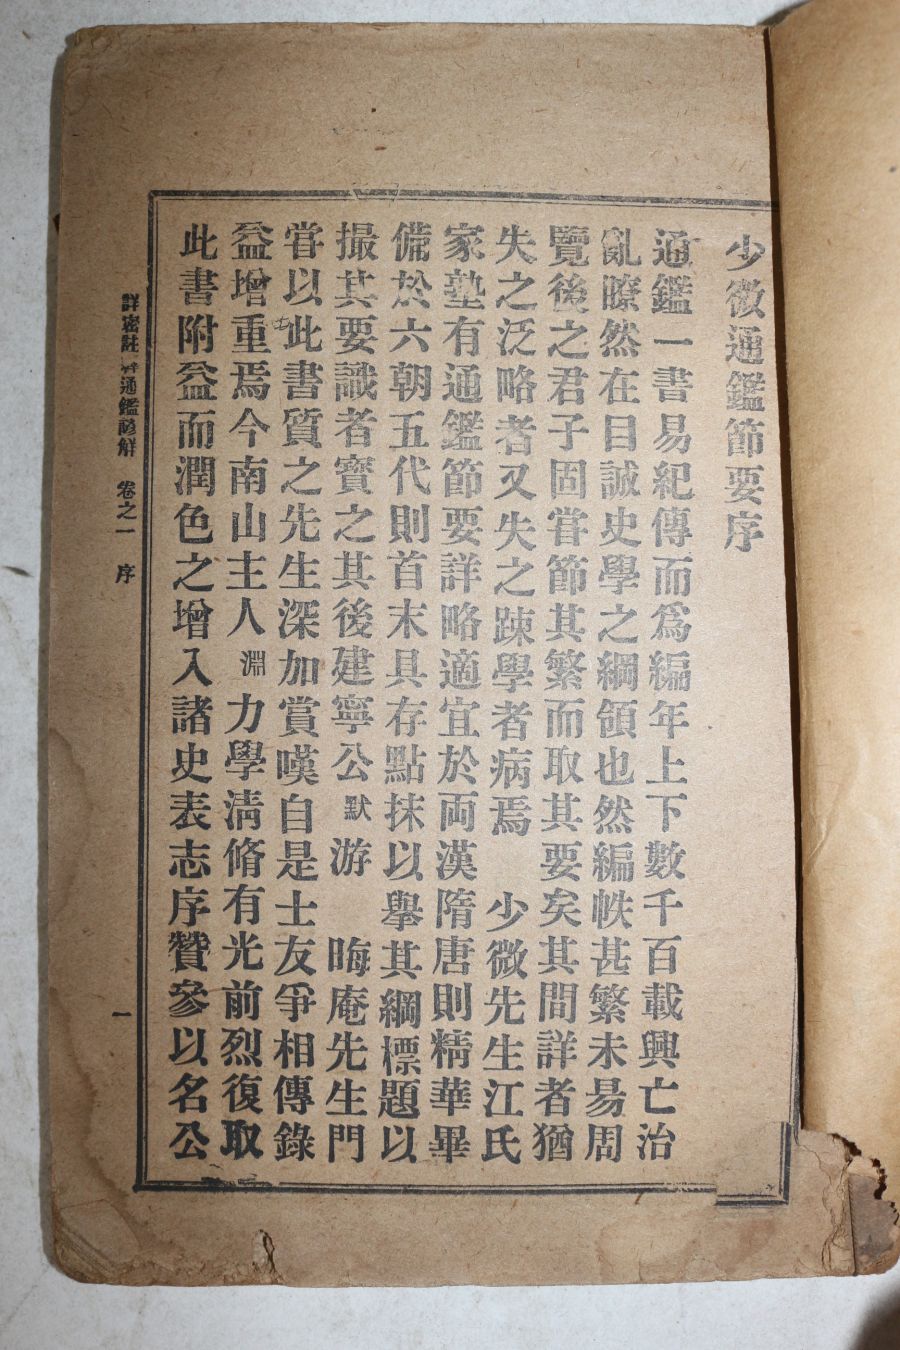 少微通鑑節要序
通鑑一書易紀傳而爲編年上下數千百載興亡治
亂瞭然在目誠史學之綱領也然編帙甚繁未易周
覽後之君子固甞節其繁而取其要矣其間詳者猶
失之泛略者又失之踈學者病焉 少微先生江氏
家塾有通鑑節要詳略適宜於両漢隋唐則精華畢
備於六朝五代則首末具存點抹以擧其綱標題以
撮其要識者寶之其後建寧公默游 晦庵先生門
甞以此書質之先生深加賞嘆自是士友爭相傳錄
益增重焉今南山主人淵力學淸脩有光前烈復取
此書附益而潤色之增入諸史表志序贊參以名公
詳密註解通鑑諺解 卷之一 序 一